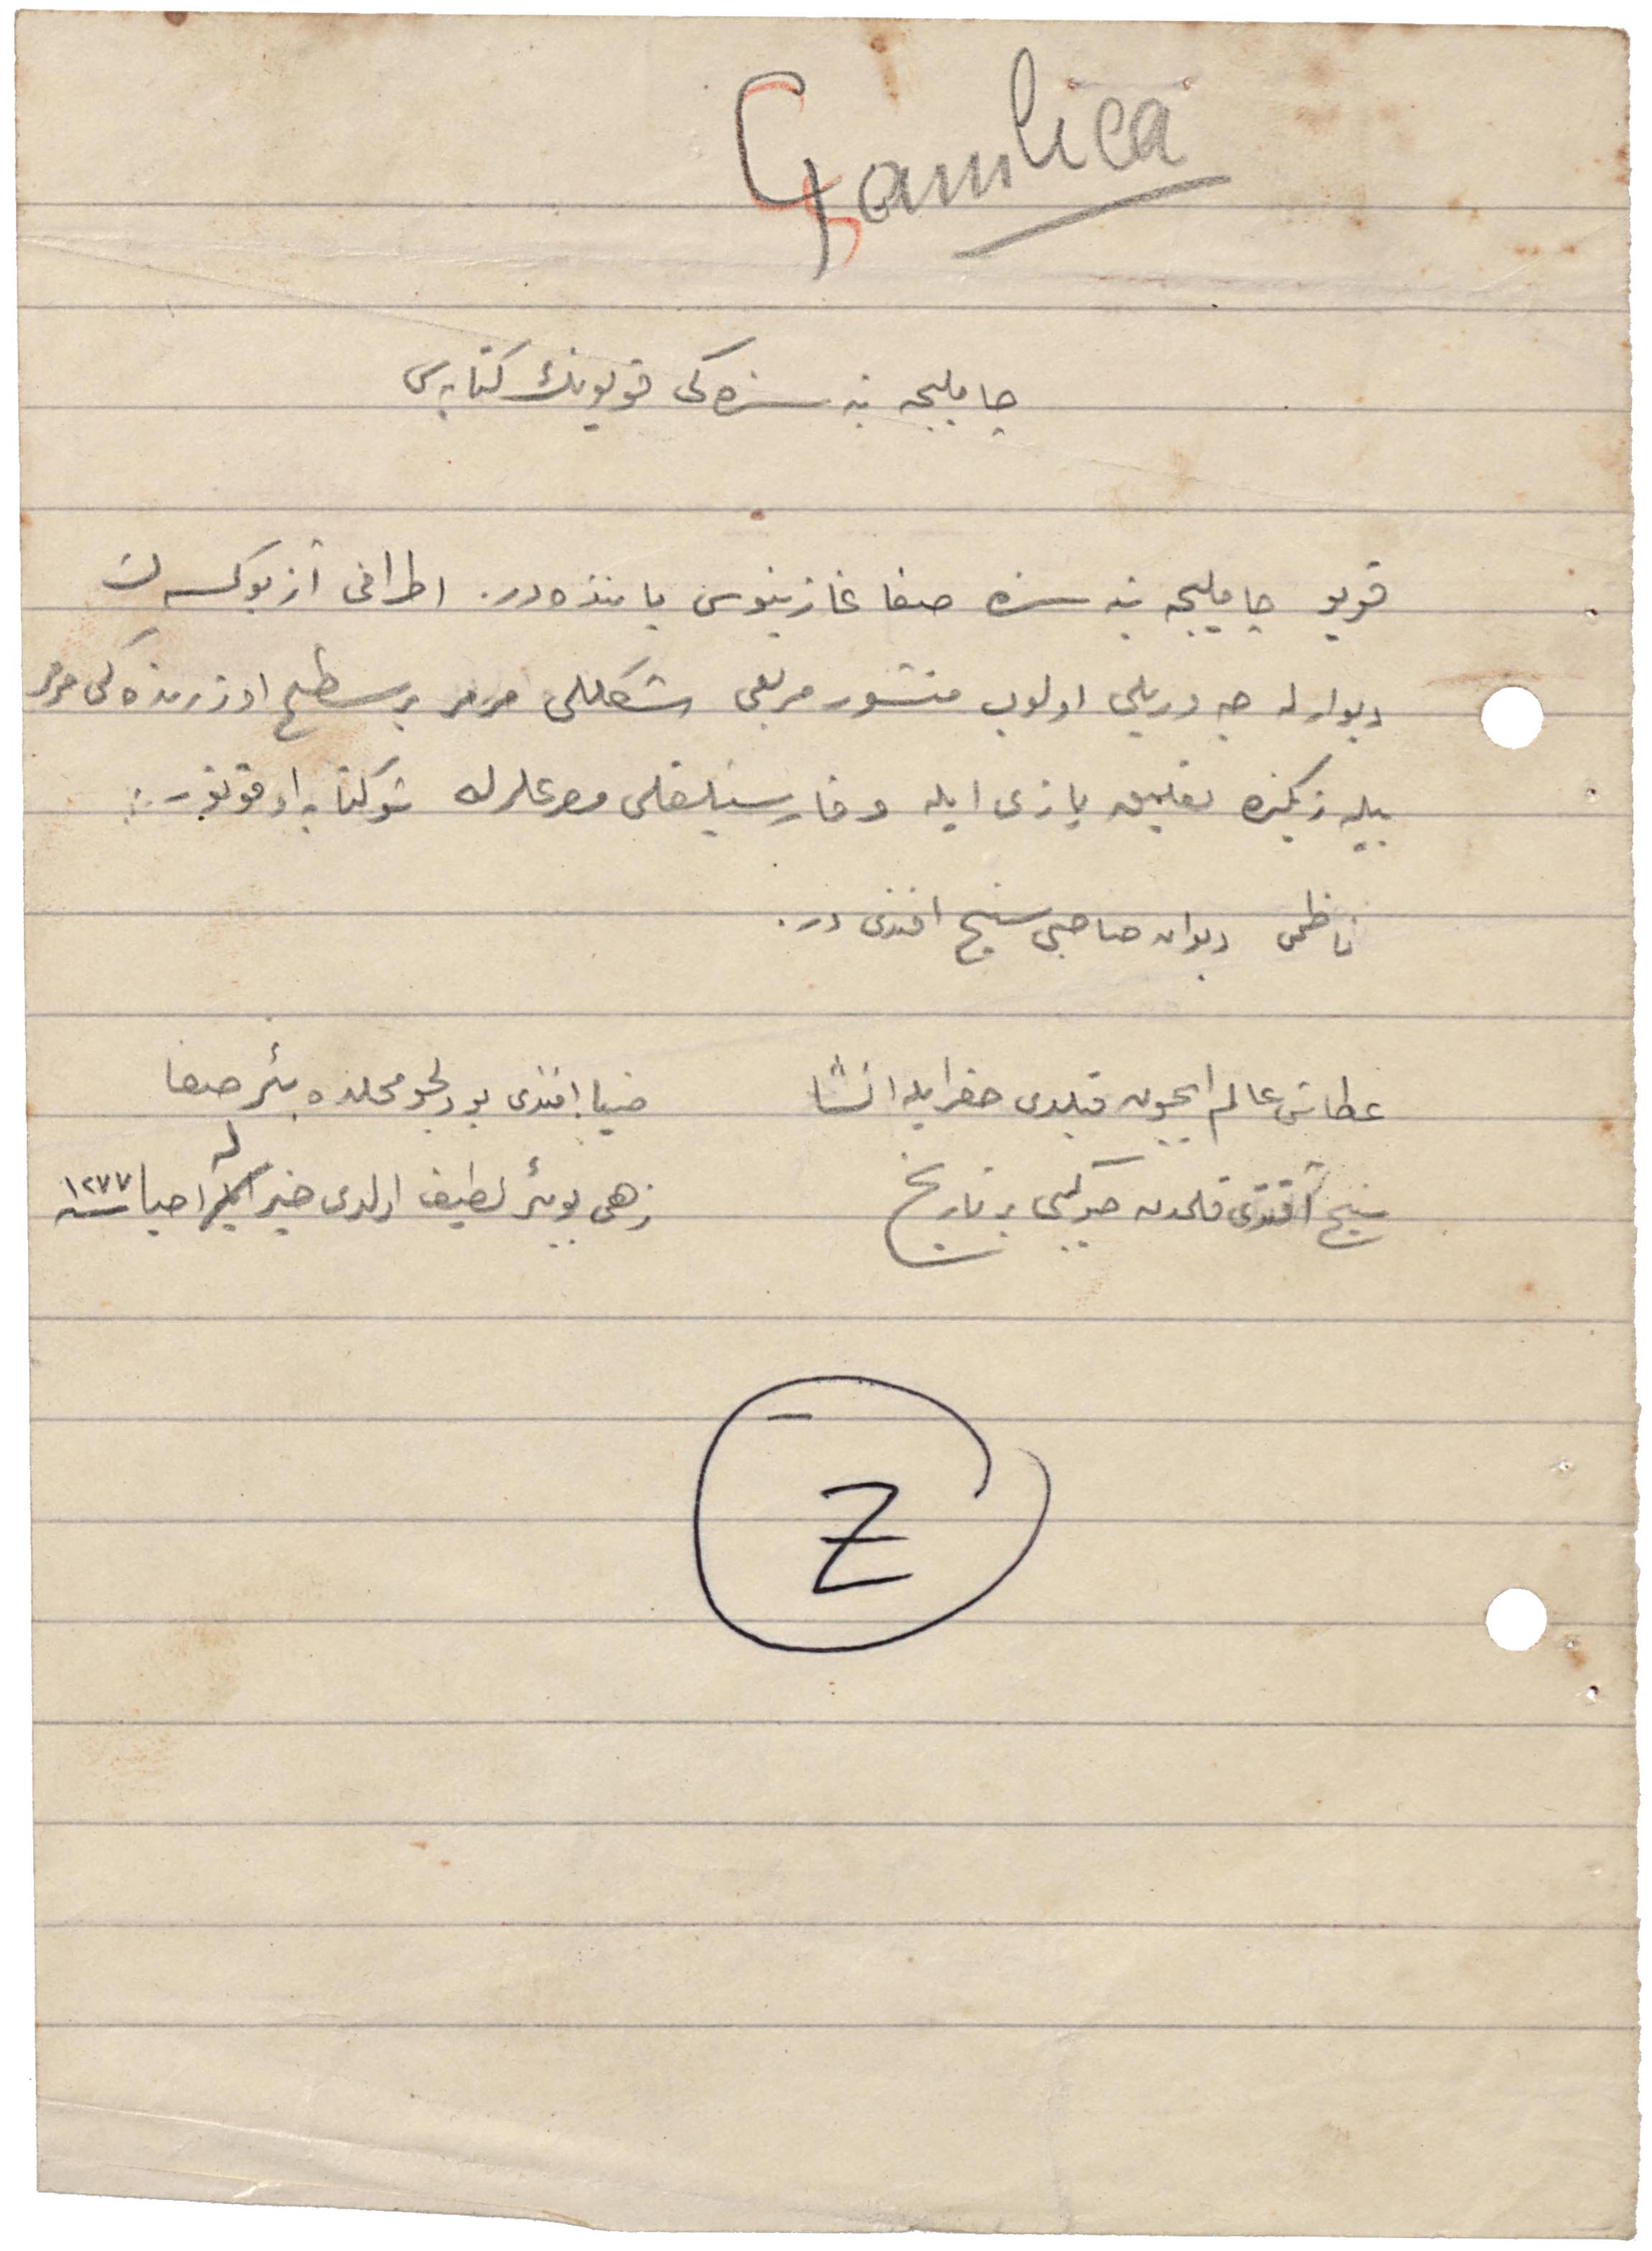 Çamlıca
چاملیجه تپه سنده کی قویونك کتابه سی
قویو چاملیجه تپه سنده صفا غازینوسی یاننده در. اطرافی آز یوکسك
دیوارله چه وریلی اولوب منشور مربعی شکللی مرمر بر سطح اوزرنده کی مرمر
بیله زیکنده تعلیق یازی ایله و مصرعلرله شو کتابه اوقونور:
ناظمی دیوان صاحبی سنیح افندی در.
عطاش عالم ایچون قیلدی حفر ایله انشا
ضیا افندی بو دلجو محلده بئر صفا
سنیح آقندی قلمدن چو کبی بر تاریخ
زهی بو بئر لطیف اولدی خیر له احیا سنه ١٢٧٧
Z